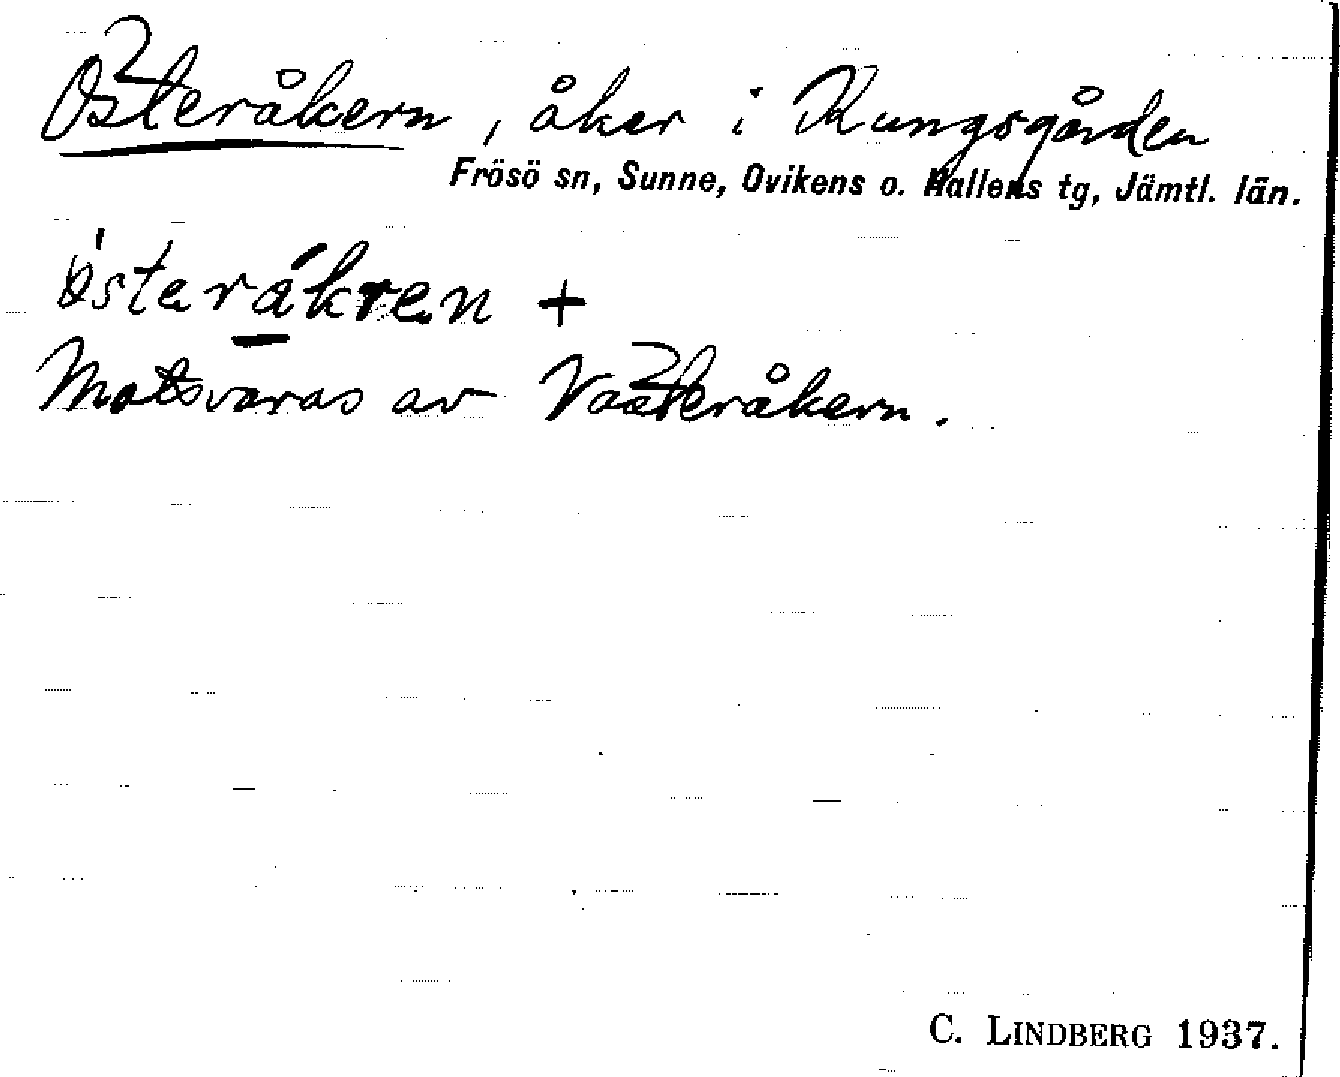 Österåkern, åker i Kungsgården
Frösö sn, Sunne, Ovikens o. Hallens tg, Jämtl. län.
österåkren +
Motsvaras av Västeråkern.
C. LINDBERG 1937.